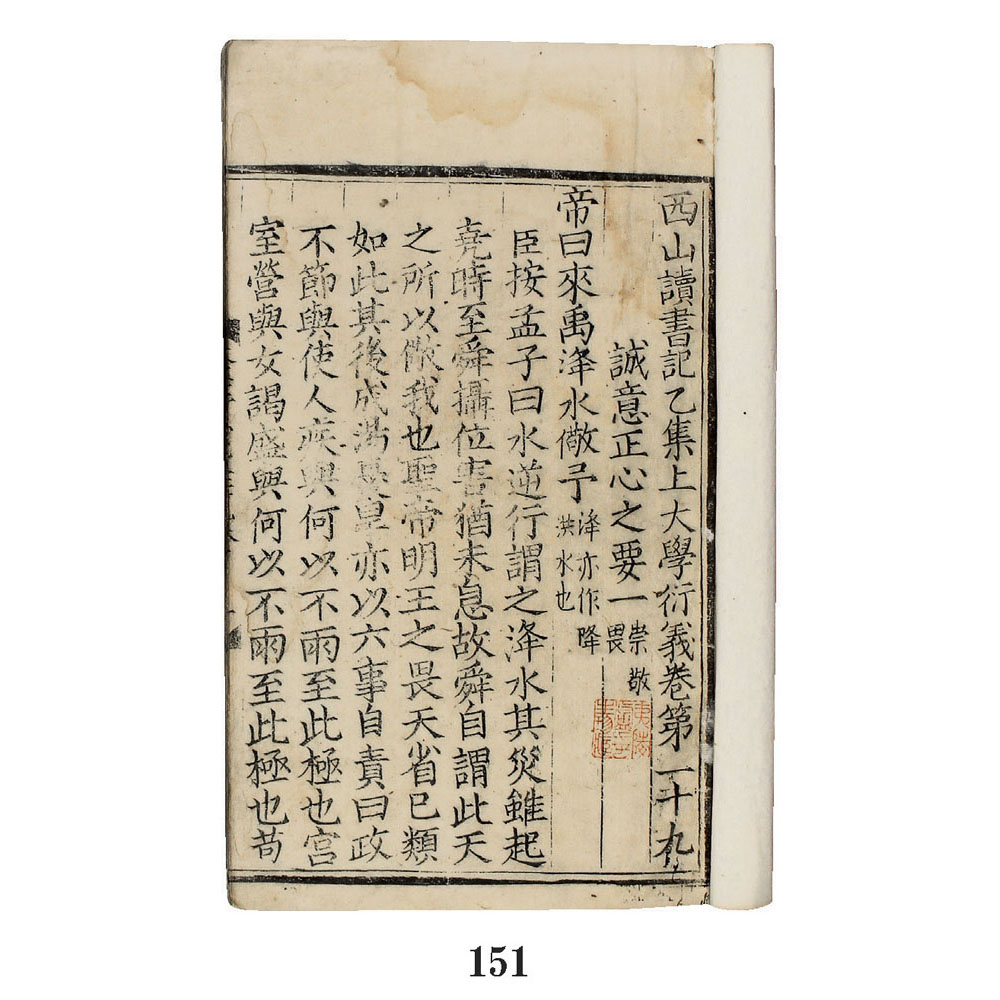 西山讀書記乙集上大學衍義卷第二十九
誠意正心之要一崇敬畏
帝曰來禹洚水儆予洚亦作降洪水也
臣按孟子曰水逆行謂之洚水其災雖起
堯時至舜攝位害猶未息故舜自謂此天
之所以儆我也聖帝明王之畏天省已類
如此其後成湯憂旱亦以六事自責曰政
不節與使人疾與何以不雨至此極也宫
室營與女謁盛與何以不雨至此極也苟
151